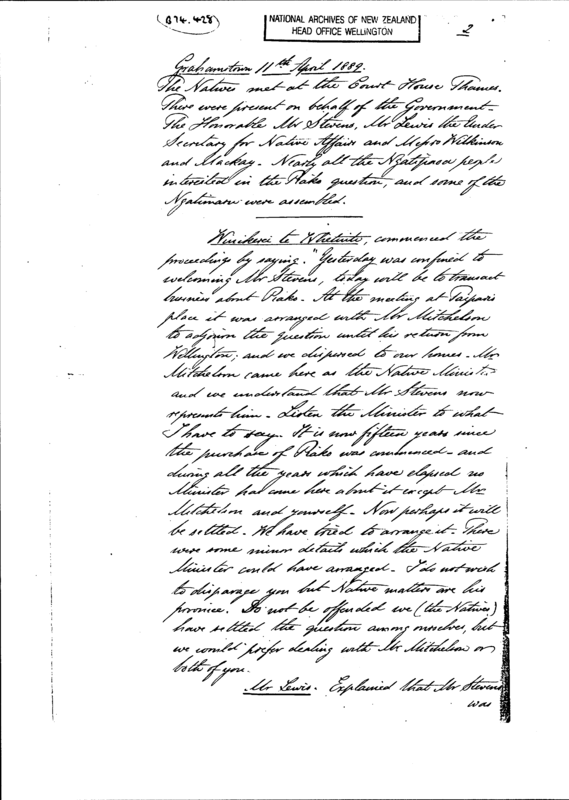 (874.428)
NATIONAL ARCHIVES OF NEW ZEALAND
HEAD OFFICE WELLINGTON
2
Grahamstown 11th April 1889.
The Natives met at the Court House Thames.
There were present on behalf of the Government -
The Honorable Mr Stevens, Mr Lewis the Under
Secretary for Native Affairs and Messrs Wilkinson
and Mackay - Nearly all the Ngatipaoa people
interested in the Piako question, and some of the
Ngatimaru were assembled.
te Whetuiti, commenced the
proceedings by saying. "Yesterday was confined to
welcoming Mr Stevens, today will be to transact
business about Piako. At the meeting at Taipari's
place it was arranged with Mr Mitchelson
to adjourn the question until his return from
Wellington; and we dispersed to our homes - Mr
Mitchelson came here as the Native Minister
and we understand that Mr Stevens now
represents him - Listen the Minister to what
I have to say. It is now fifteen years since
the purchase of Piako was commenced - and
during all the years which have elapsed no
Minister has come here about it except Mr
Mitchelson and yourself - Now perhaps it will
be settled - We have tried to arrange it - There
were some minor details which the Native
Minister could have arranged - I do not wish
to disparage you but Native matters are his
province. Do not be offended we (the Natives)
have settled the question among ourselves, but
we would prefer dealing with Mr Mitchelson or
both of you.
Mr Lewis. Explained that Mr Stevens
was